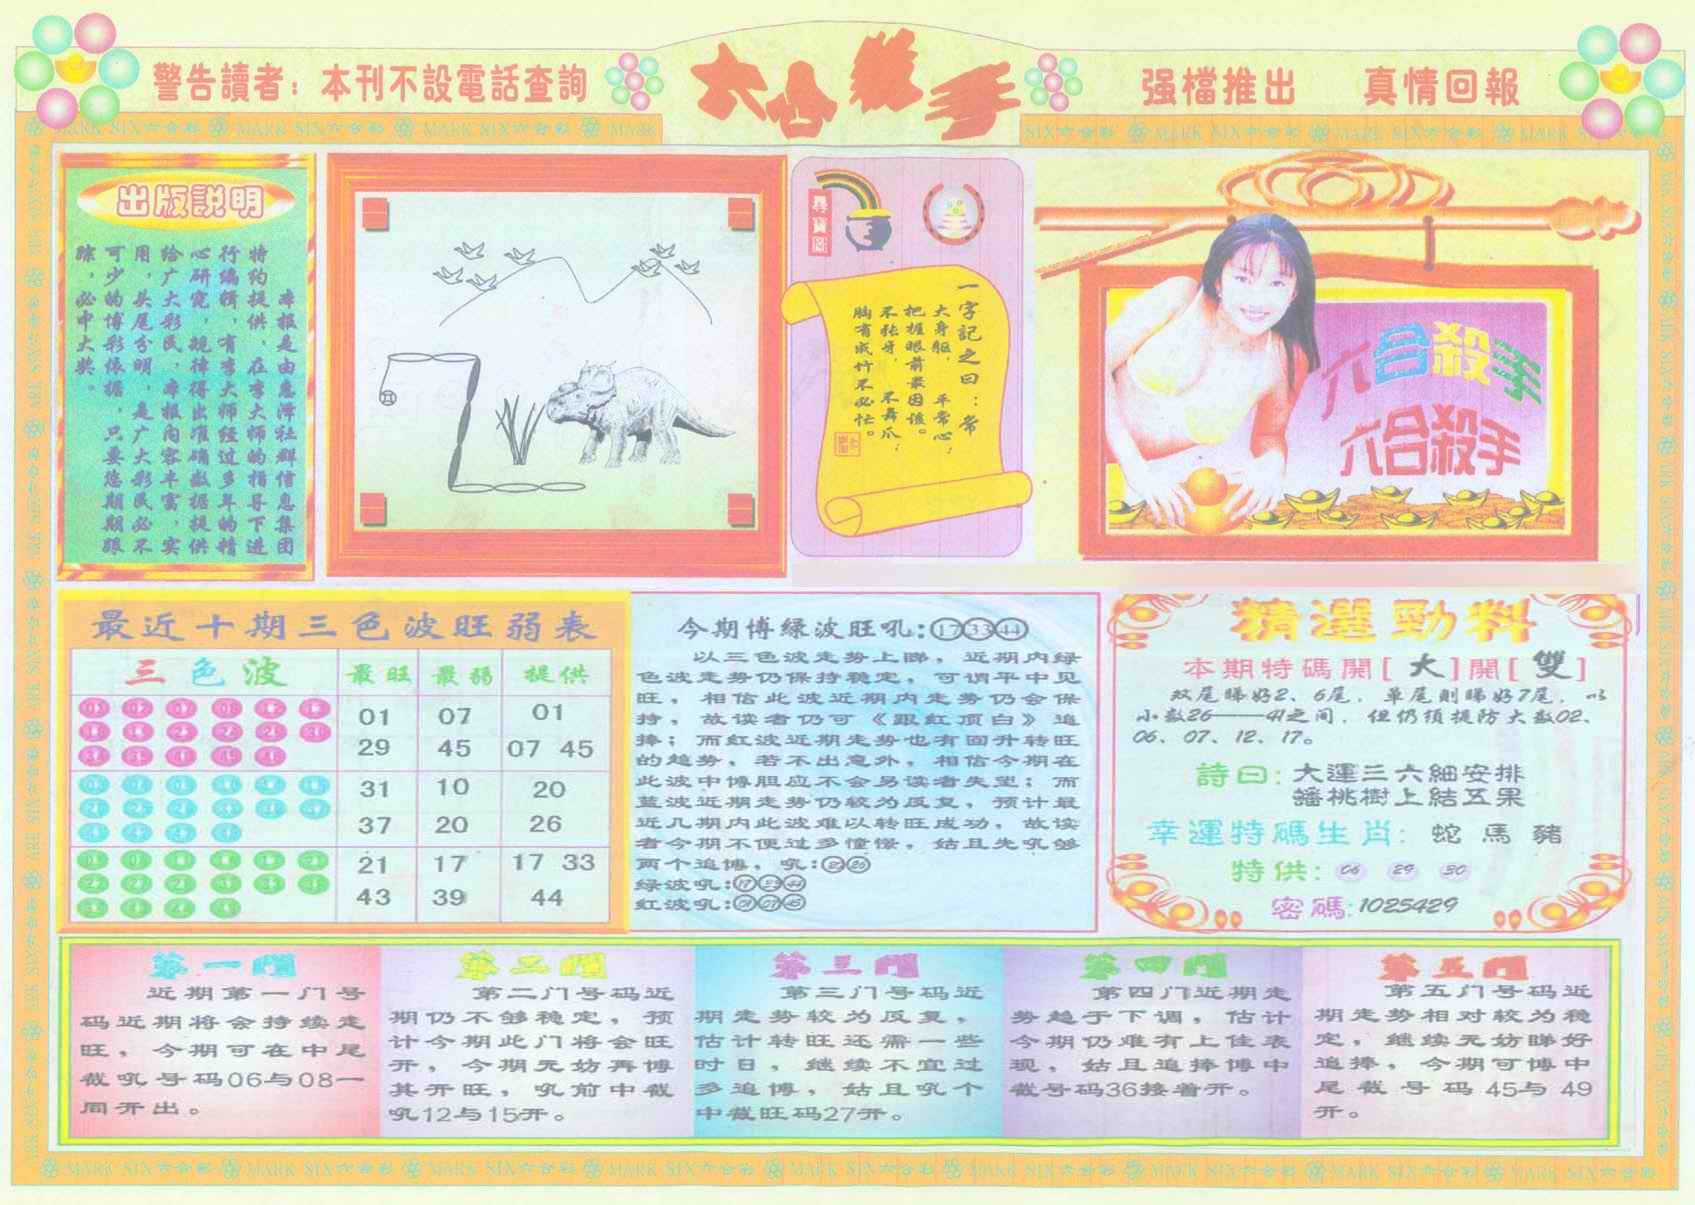 警告讀者：本刊不設電話查詢
六合殺手
强檔推出 真情回報
出版説明
本报是由惠泽社群信息集团
特约提供、在李大师的指导下进
行编辑、有李大师经过多年的精
心研究，规律得出准确数据提供
给广大彩民，本报内容丰富，实
用，头尾分明，是广大彩民必不
可少的博彩依据，只要您期期跟
踪，必中大奖。
尋寶圖
一字記之曰：常
大身躯，平常心；
把握眼前最因该。
不张牙，不舞爪；
胸有成竹不必忙。
六合殺手
六合殺手
最近十期三色波旺弱表
三色波 最旺 最弱 提供
01 07 01
29 45 07 45
31 10 20
37 20 26
21 17 17 33
43 39 44
今期博綠波旺吼：17 33 44
以三色波走势上睇，近期内绿
色波走势仍保持稳定，可谓平中见
旺，相信此波近期内走势仍会保
持，故读者仍可《跟红顶白》追
捧；而红波近期走势也有回升转旺
的趋势，若不出意外，相信今期在
此波中博胆应不会另读者失望；而
蓝波近期走势仍较为反复，预计最
近几期内此波难以转旺成功，故读
者今期不便过多憧憬，姑且先吼够
两个追博，吼：20 26
绿波吼：17 33 44
红波吼：01 07 45
精選勁料
本期特碼開[大]開[雙]
双尾睇好2、6尾，单尾則睇好7尾，以
小数26——41之间，但仍须提防大数02、
06、07、12、17。
詩曰：大運三六細安排
蟠桃樹上結五果
幸運特碼生肖：蛇 馬 豬
特供：06 29 30
密碼：1025429
第一門
近期第一门号
码近期将会持续走
旺，今期可在中尾
截吼号码06与08一
同开出。
第二門
第二门号码近
期仍不够稳定，预
计今期此门将会旺
开，今期无妨再博
其开旺，吼前中截
吼12与15开。
第三門
第三门号码近
期走势较为反复，
估计转旺还需一些
时日，继续不宜过
多追博，姑且吼个
中截旺码27开。
第四門
第四门近期走
势趋于下调，估计
今期仍难有上佳表
现，姑且追捧博中
截号码36接着开。
第五門
第五门号码近
期走势相对较为稳
定，继续无妨睇好
追捧，今期可博中
尾截号码45与49
开。
MARK SIX六合彩 MARK SIX六合彩 MARK SIX六合彩 MARK SIX六合彩 MARK SIX六合彩 MARK SIX六合彩 MARK SIX六合彩 MARK SIX六合彩 MARK SIX六合彩